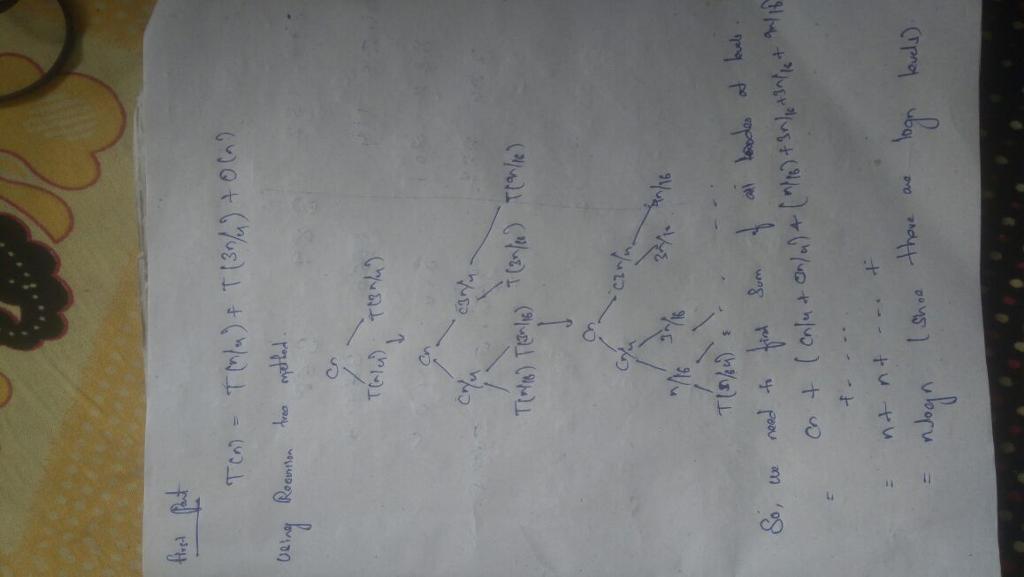 First Part
T(n) = T(n/4) + T(3n/4) + O(n)
Using Recursion tree method.
Cn
T(n/4) T(3n/4)
Cn
Cn/4 C3n/4
T(n/16) T(3n/16) T(3n/16) T(9n/16)
Cn
Cn/4 C3n/4
n/16 3n/16 3n/16 9n/16
T(n/64)
So, we need to find sum of all nodes at levels.
= Cn + (Cn/4 + 3n/4) + [n/16 + 3n/16 + 3n/16 + 9n/16
+ - - - - -
= n + n + - - - - +
= nlogn (since there are logn levels)